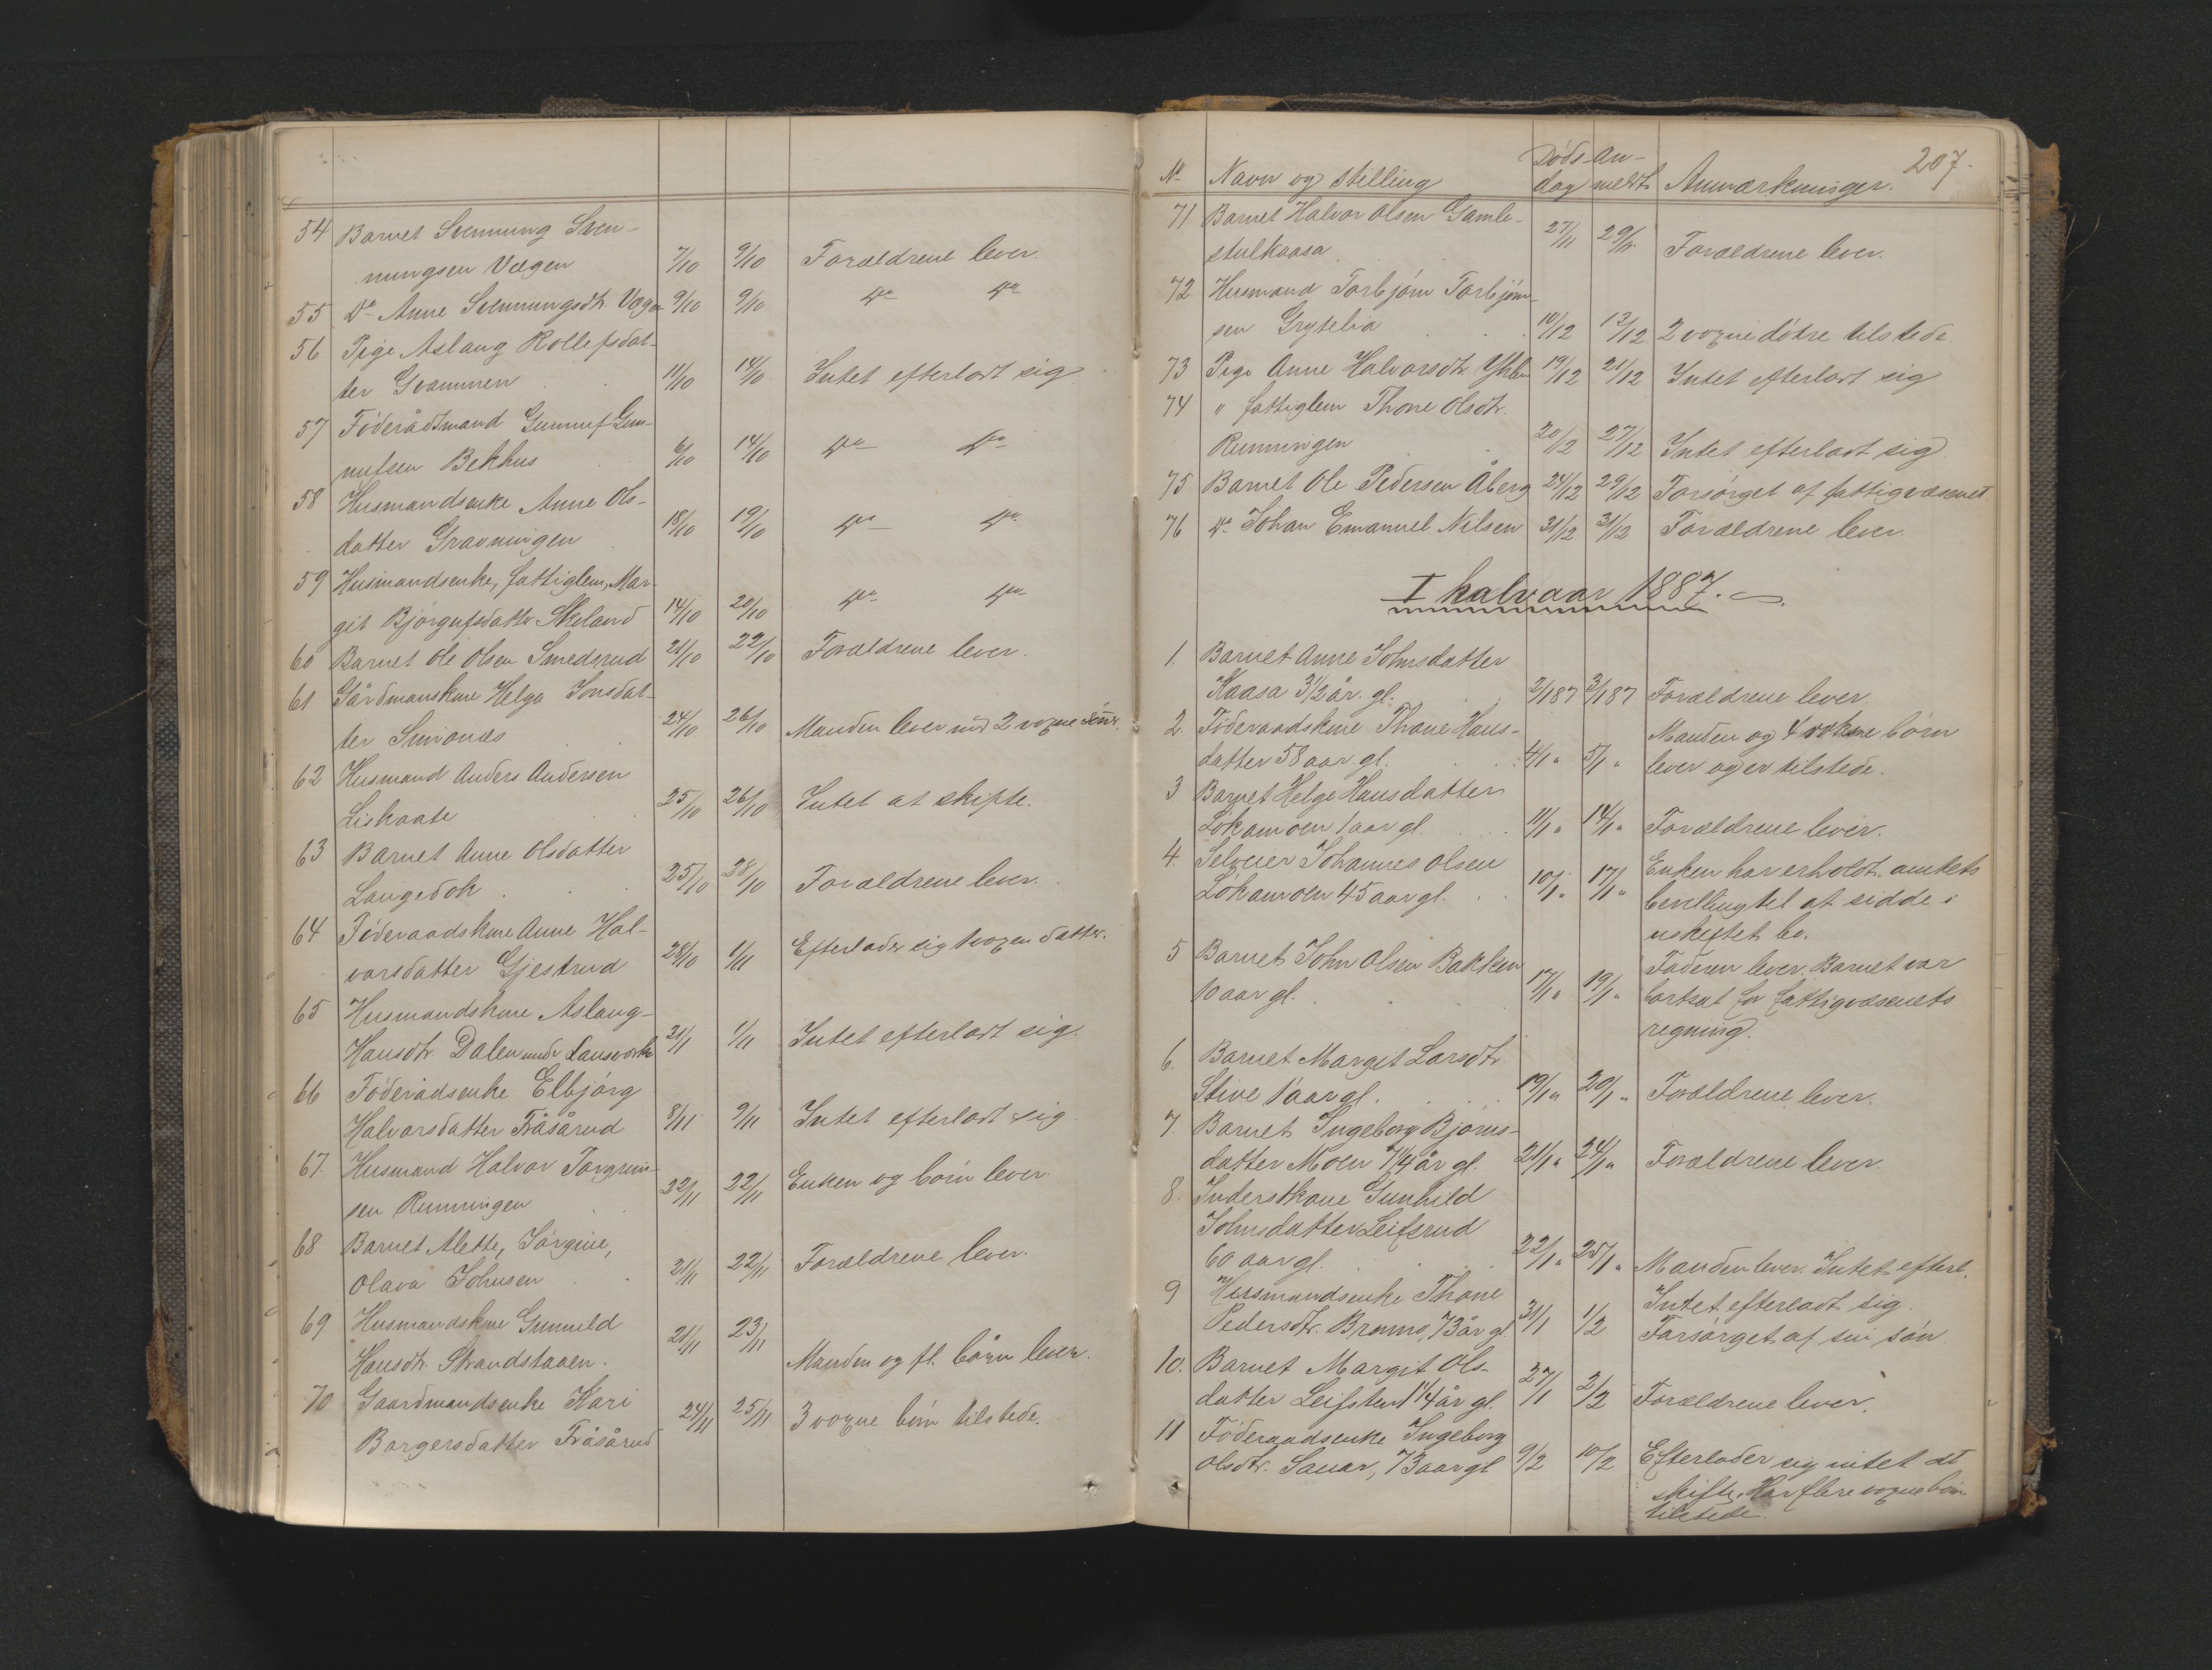 54 Barnet Svennung Sven-
nungsen Vægen 7/10 9/10 Forældrene lever.
55 Do Anne Svennungsdtr. Vægen 9/10 9/10 Do Do
56 Pige Aslaug Rollefsdat-
ter Gvammen 11/10 14/10 Intet efterladt sig
57 Föderådsmand Gunnuf Gun-
nufsen Bekhus 6/10 14/10 Do Do
58 Husmandsenke Anne Ols-
datter Gravningen 18/10 19/10 Do Do
59 Husmandsenke, fattiglem, Mar-
git Bjørgufsdatter Skeland 14/10 20/10 Do Do
60 Barnet Ole Olsen Smedsrud 21/10 22/10 Forældrene lever.
61 Gårdmanskone Helga Jonsdat-
ter Simonæs 24/10 26/10 Manden lever med 2 voxne
62 Husmand Anders Andersen
Liskaate 25/10 26/10 Intet at skifte.
63 Barnet Anne Olsdatter
Langedok 25/10 28/10 Forældrene lever.
64 Föderaadskone Anne Hal-
vorsdatter Gjestrud 28/10 1/11 Efterlader sig 1 voxen datter.
65 Husmandskone Aslaug
Hansdtr. Dalen under Lausværk 31/11 1/11 Intet efterladt sig.
66 Föderådsenke Elbjörg
Halvorsdatter Tråsårud 8/11 9/11 Intet efterladt sig.
67. Husmand Halvor Torgrim-
sen Runningen 22/11 22/11 Enken og börn lever.
68 Barnet Alette, Jörgine,
Olava Johnsen 21/11 22/11 Forældrene lever.
69 Husmandskone Gunnild
Hansdtr. Strandstaaen. 21/11 23/11 Manden og fl. börn lever.
70 Gaardmandsenke Kari
Borgersdatter Tråsårud 24/11 25/11 3 voxne börn tilstede.
207.
No Navn og stilling Döds- An-
dag meldt Anmærkninger.
71 Barnet Halvor Olsen Gamle-
stulkaasa 27/11 29/11 Forældrene lever.
72 Husmand Torbjörn Torbjörn-
sen Grytelia 10/12 13/12 2 voxne döttre tilstede.
73 Pige Anne Halvorsdtr. 19/12 21/12 Intet efterladt sig
74 " fattiglem Thone Olsdtr.
Runningen 20/12 27/12 Intet efterladt sig.
75 Barnet Ole Pedersen Åberg 24/12 29/12 Forsörget af fattigvæsenet
76 Do Johan Emanuel Nilsen 31/12 31/12 Forældrene lever.
I halvaar 1887.
1. Barnet Anne Johnsdatter
Kaasa 3 1/2 år. gl. 2/1 87 3/1 87 Forældrene lever.
2 Föderaadskone Thone Hans- Manden og 4 voksne börn
datter 58 aar gl. 4/1 " 5/1 " lever og er tilstede.
3 Barnet Helge Hansdatter
Lökamoen 1 aar gl. 11/1 " 14/1 " Forældrene lever.
4. Selveier Johannes Olsen Enken har erholdt amtets
Lökamoen 45 aar gl. 10/1 " 17/1 " bevilling til at sidde i
uskiftet bo.
5 Barnet John Olsen Bakken Faderen lever. Barnet var
10 aar gl. 17/1 " 19/1 " bortsat for fattigvæsenets
regning.
6. Barnet Margit Larsdtr.
Stive 1 aar gl. 19/1 " 20/1 " Forældrene lever.
7. Barnet Ingeborg Bjørns-
datter Moen 7 1/4 år gl. 21/1 " 24/1 " Forældrene lever.
8. Inderstkone Gunhild
Johnsdatter Leifsrud
60 aar gl. 22/1 " 25/1 " Manden lever. Intet efterl.
9 Husmandsenke Thone Intet efterladt sig.
Pedersdtr. 73 år gl. 31/1 1/2 Forsörget af sin sön
10. Barnet Margit Ols-
datter Leifsten 1 1/4 år gl. 27/1 2/2 Forældrene lever.
11 Föderaadsenke Ingeborg
Olsdtr. Sauar, 73 aar gl 9/2 10/2 Efterlader sig intet at
skifte. Har flere voxne börn
tilstede.